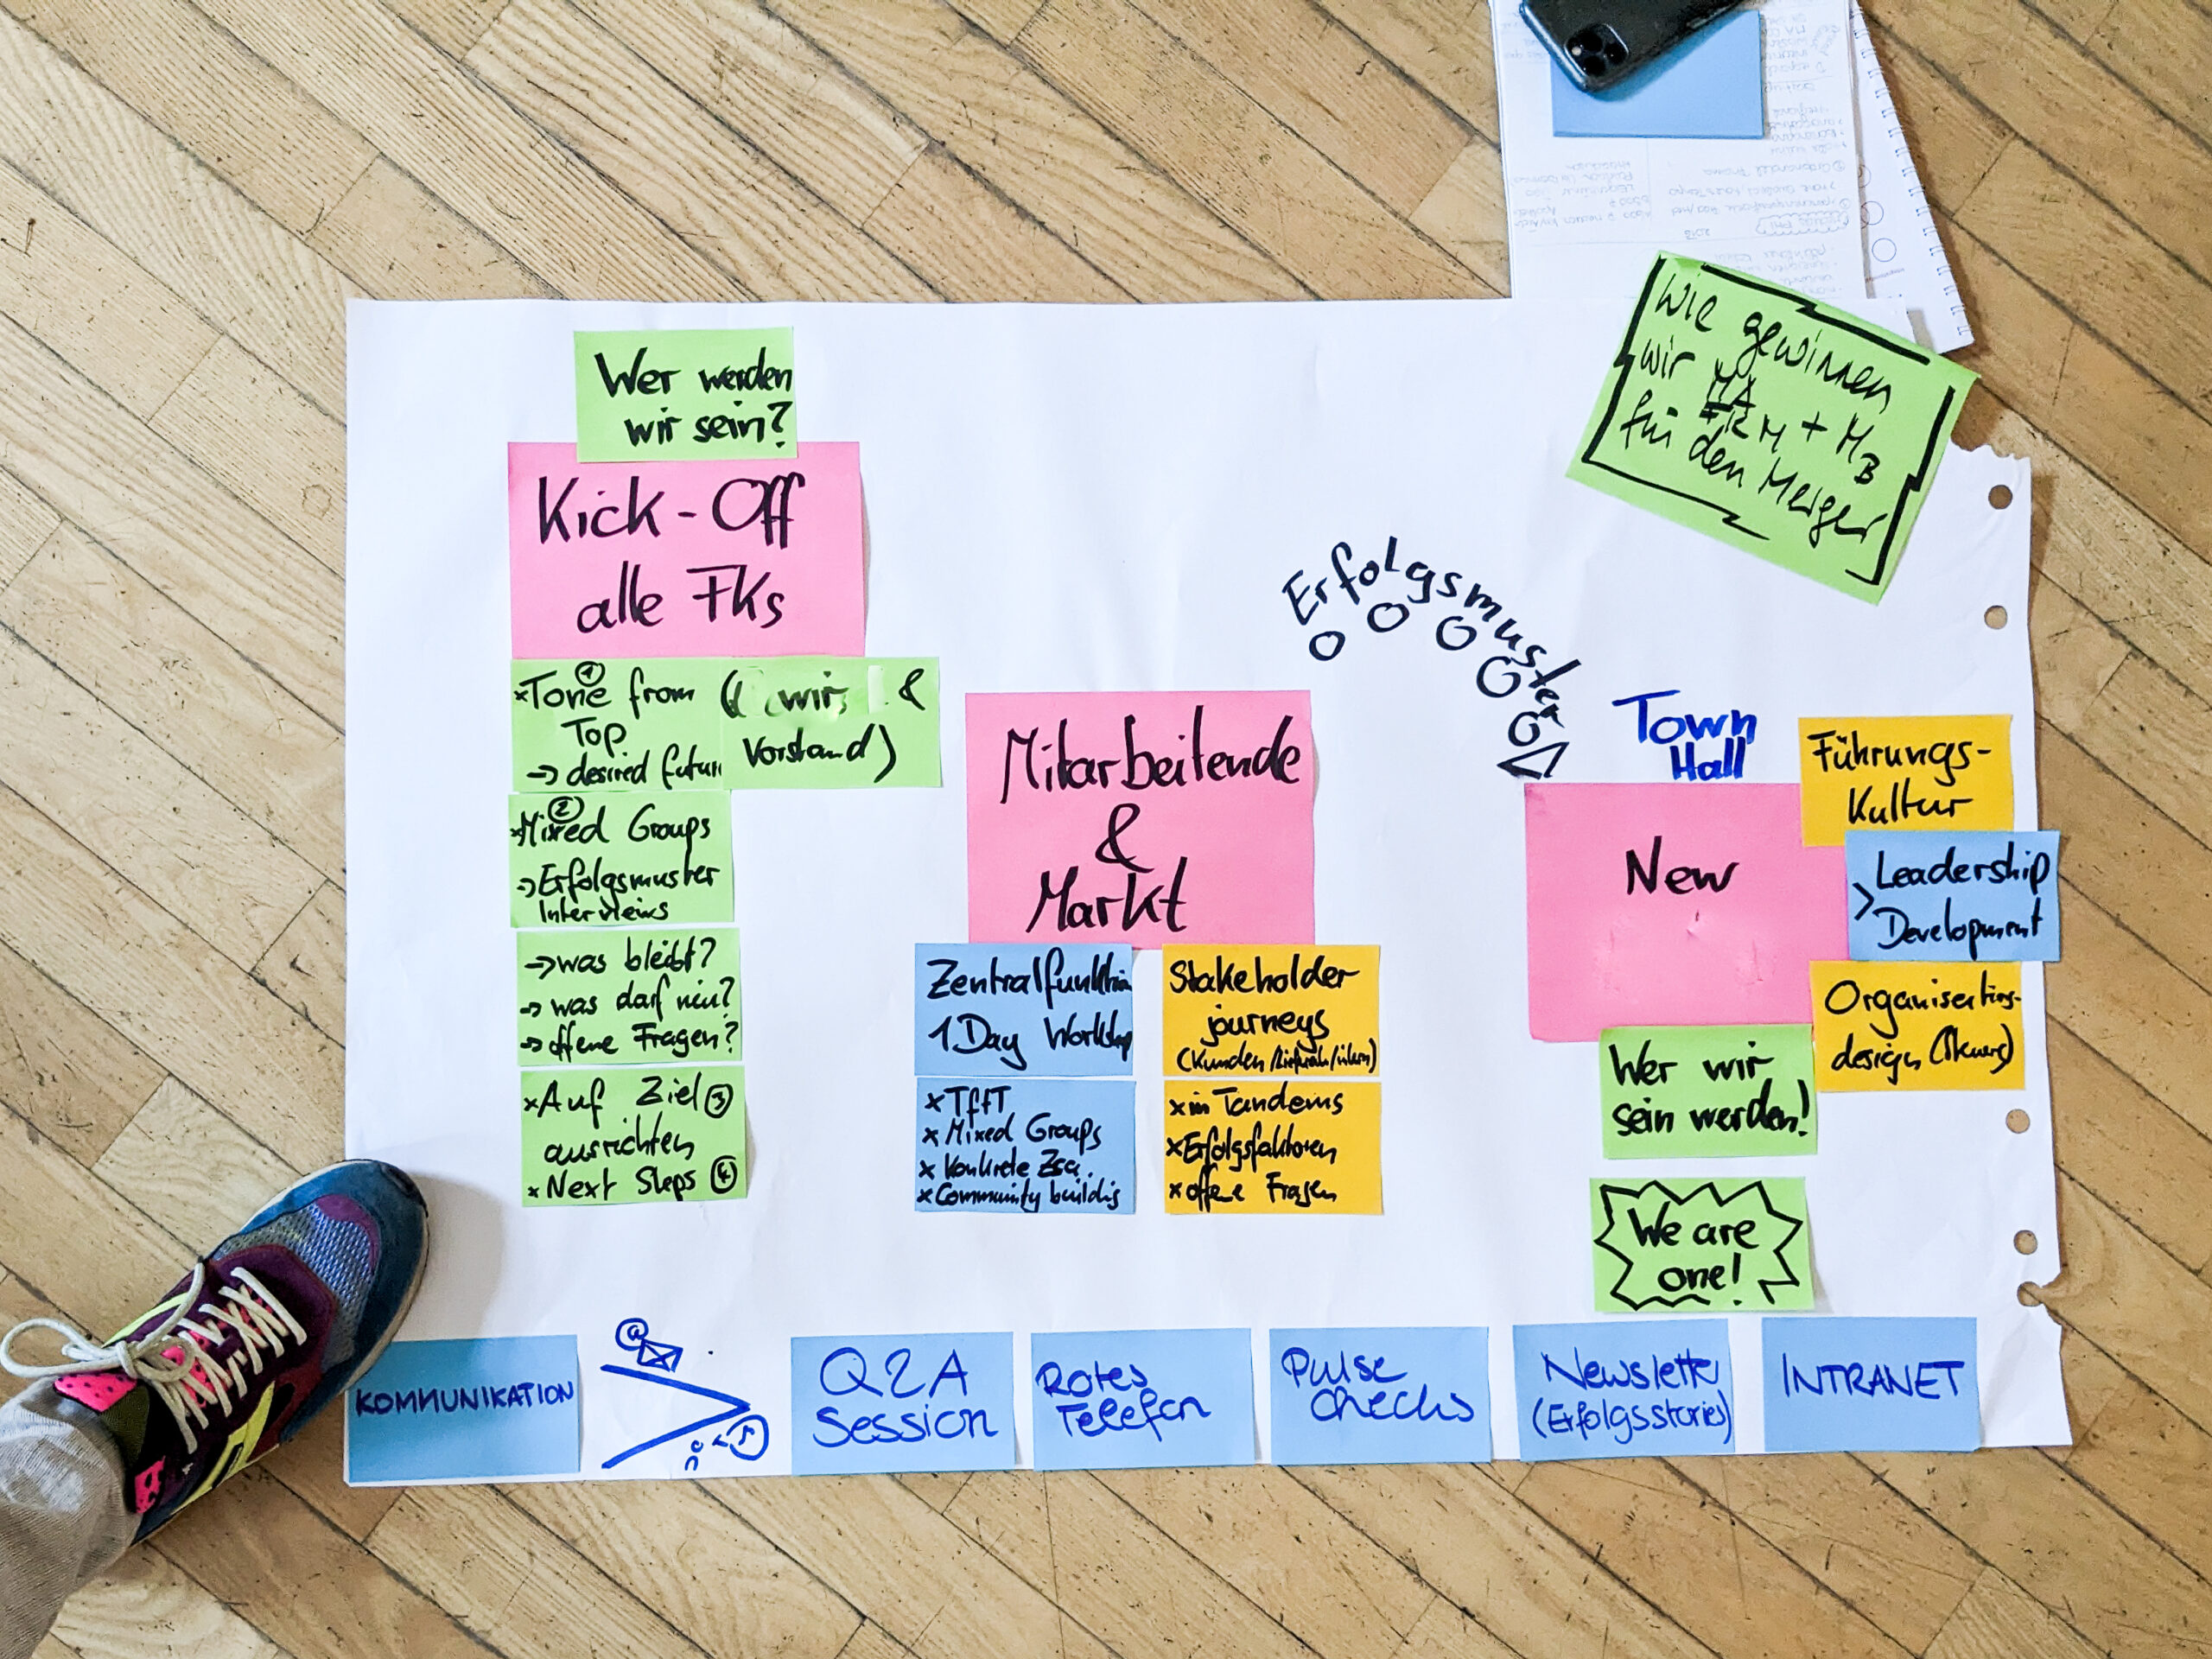 Wer werden
wir sein?
Kick-Off
alle FKs
① xTone from
Top
→ desired future
(wir &
Vorstand)
② xMixed Groups
→Erfolgsmuster
Interviews
→was bleibt?
→ was darf neu?
→ offene Fragen?
xAuf Ziel ③
ausrichten
x Next Steps ④
Mitarbeitende
&
Markt
Zentralfunktion
1 Day Workshop
x TffT
x Mixed Groups
x Konkrete Zsa.
x Community building
Stakeholder
journeys
(Kunden/
x in Tandems
xErfolgsfaktoren
x offene Fragen
Erfolgsmuster
Wie gewinnen
wir MA
+ M
B
für den Merger
Town
Hall
New
Führungs-
Kultur
> Leadership
Development
Organisations-
design
Wer wir
sein werden!
We are
one!
KOMMUNIKATION
@
Q&A
Session
Rotes
Telefon
Pulse
Checks
Newsletter
(Erfolgsstories)
INTRANET